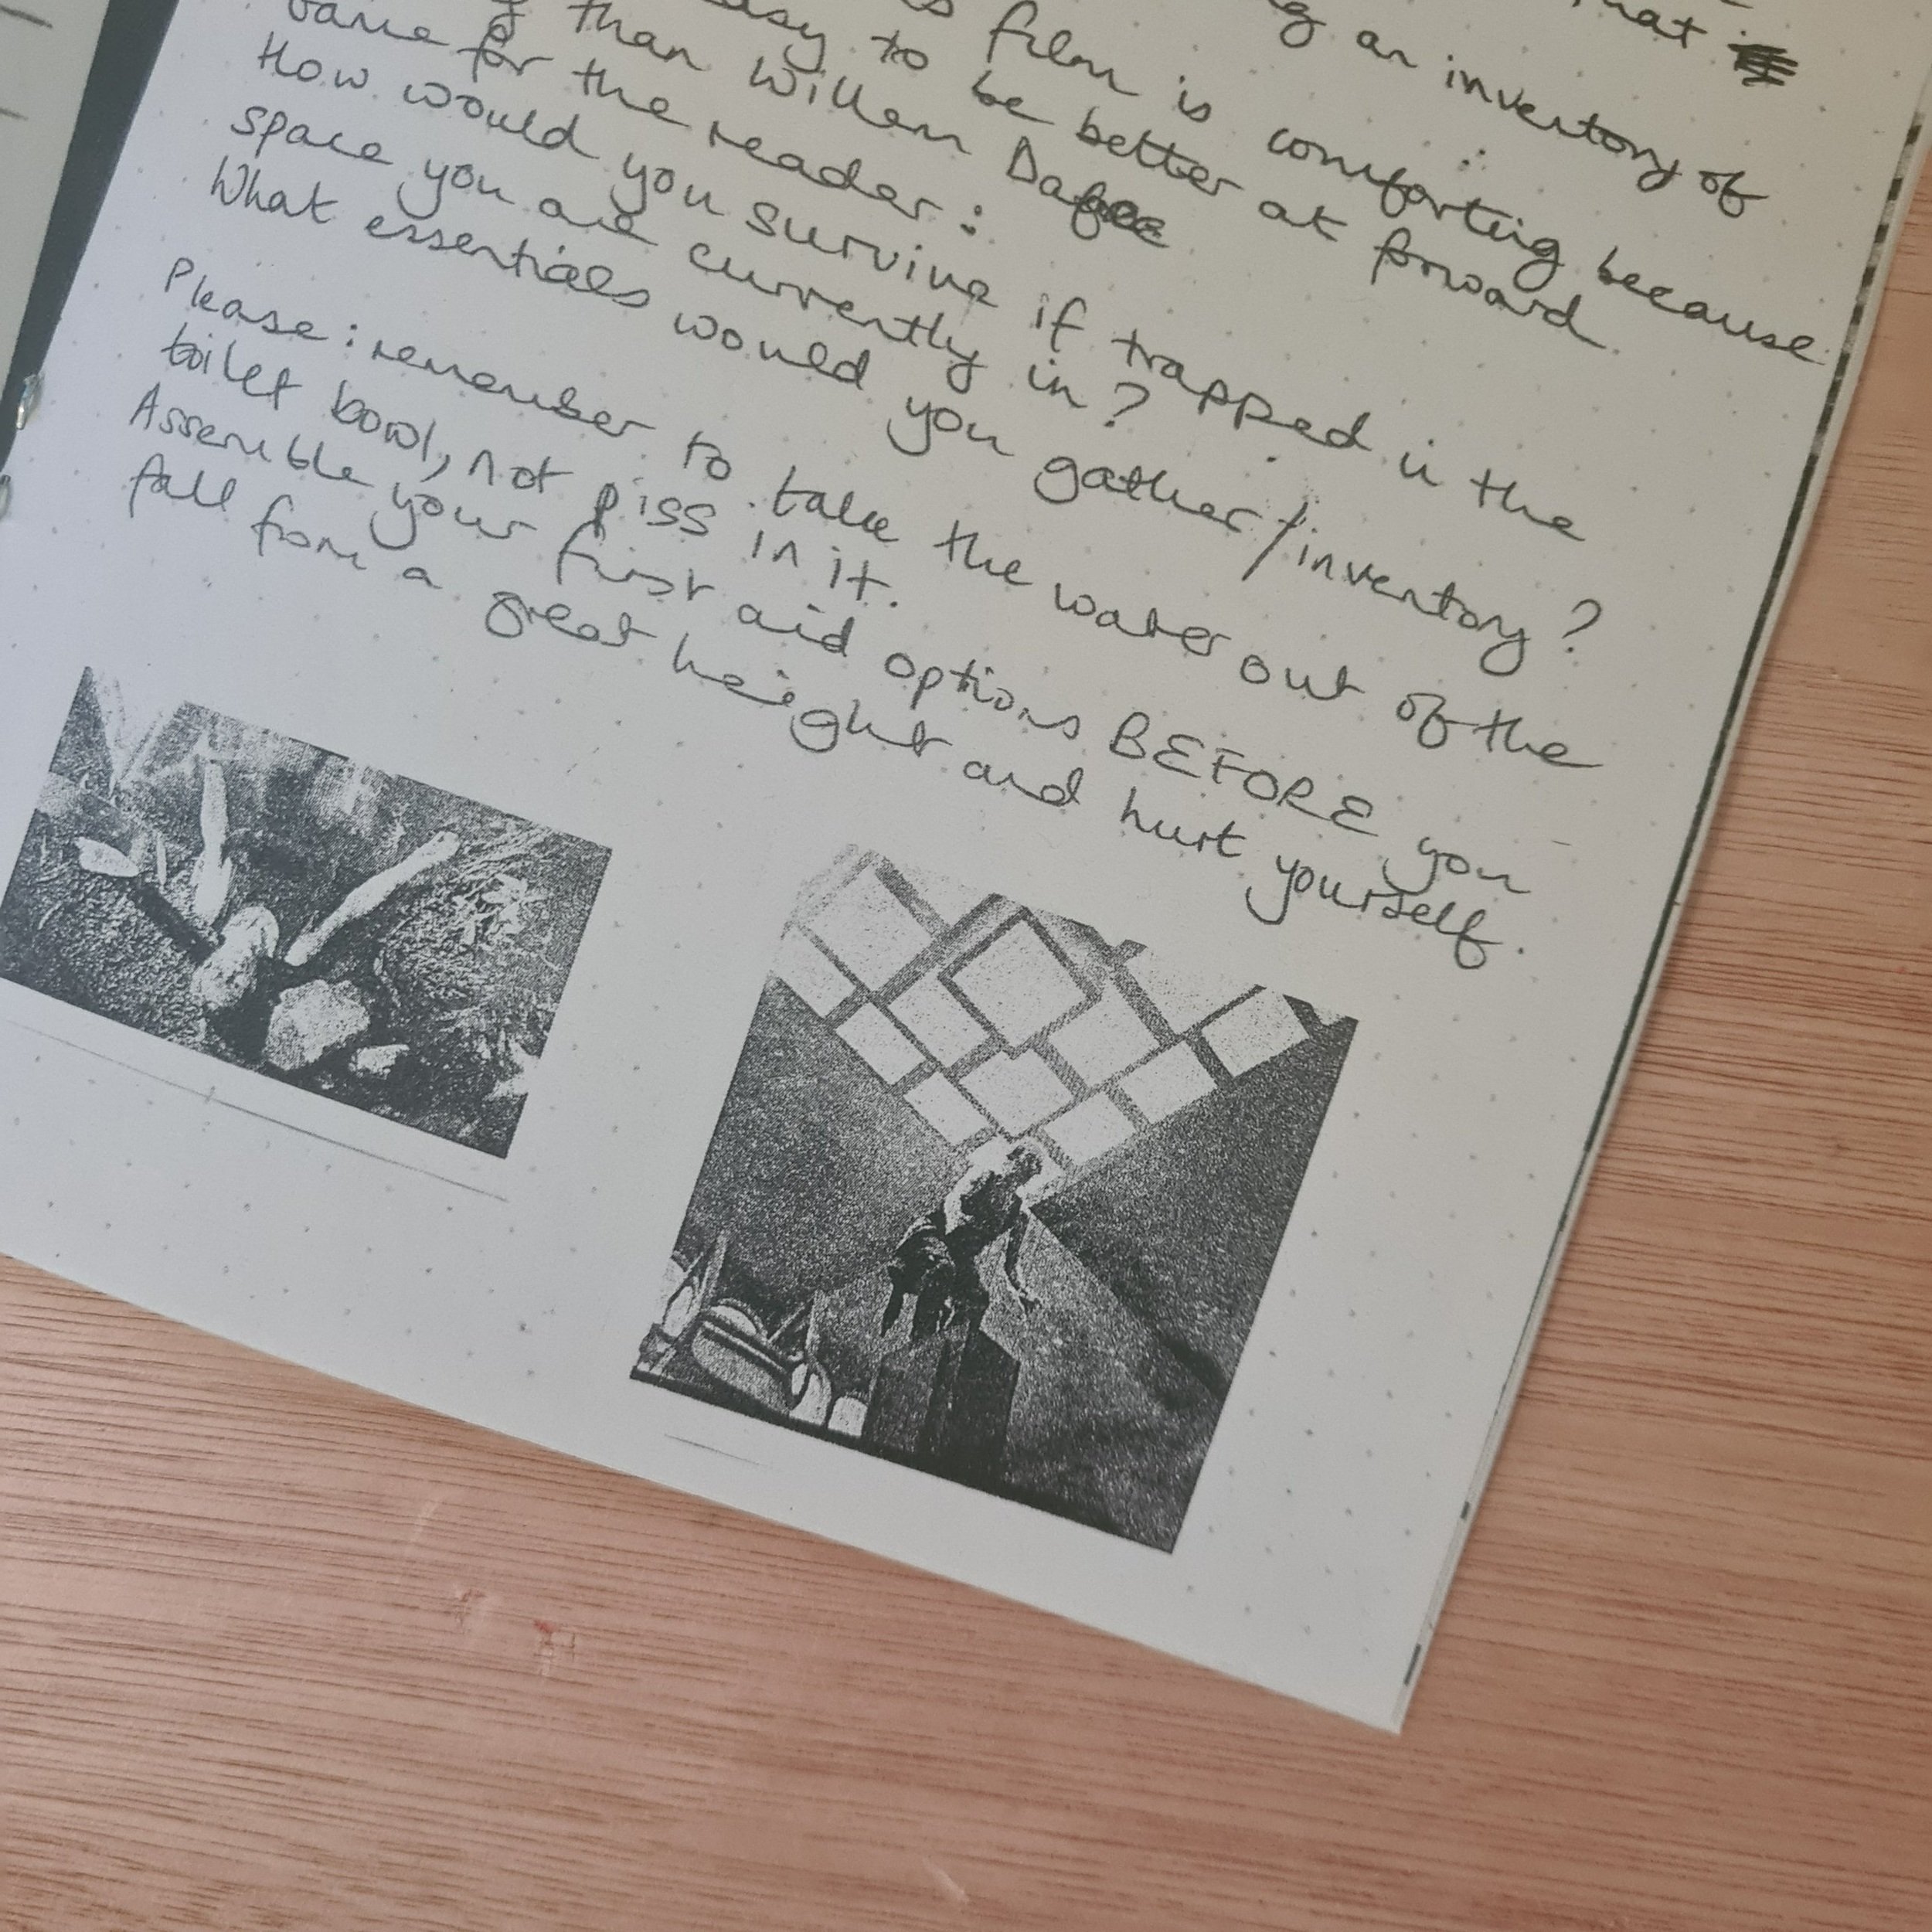 that
an inventory of
film is comforting because
easy to be better at forward
than Willem Dafoe
Game for the reader:
How would you survive if trapped in the
space you are currently in?
What essentials would you gather/inventory?
Please: remember to take the water out of the
toilet bowl, not piss in it.
Assemble your first aid options BEFORE you
fall from a great height and hurt yourself.